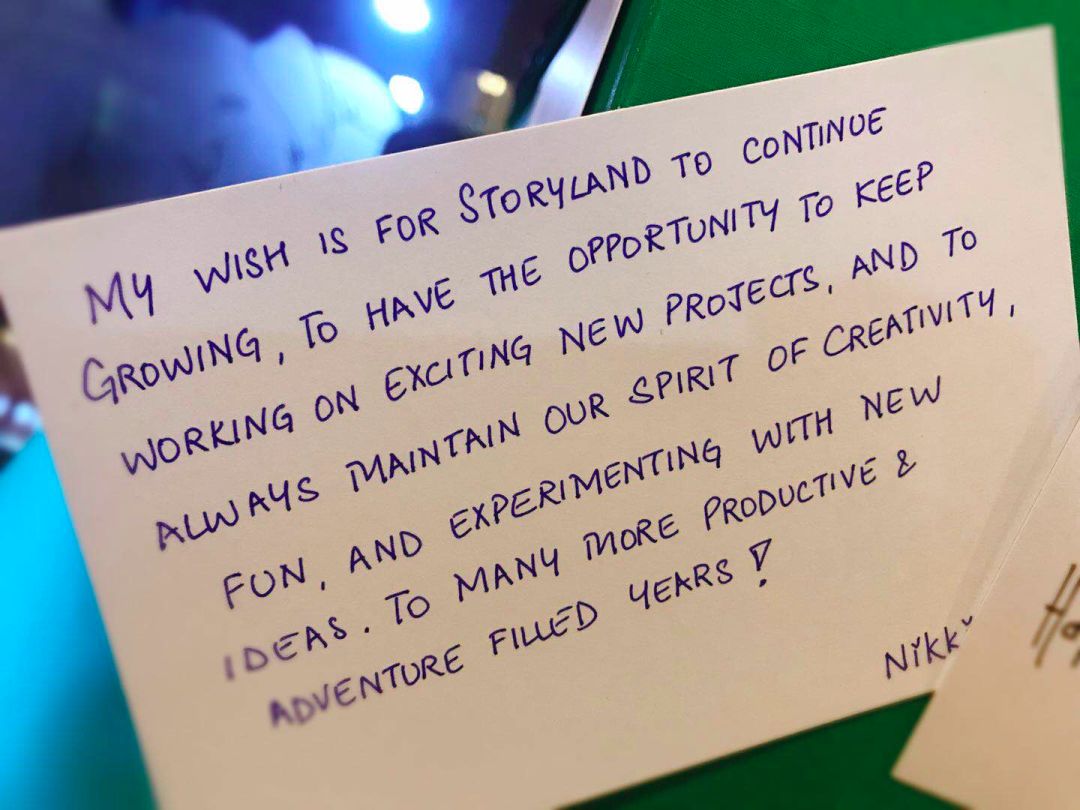 MY WISH IS FOR STORYLAND TO CONTINUE
GROWING, TO HAVE THE OPPORTUNITY TO KEEP
WORKING ON EXCITING NEW PROJECTS, AND TO
ALWAYS MAINTAIN OUR SPIRIT OF CREATIVITY,
FUN, AND EXPERIMENTING WITH NEW
IDEAS. TO MANY MORE PRODUCTIVE &
ADVENTURE FILLED YEARS!
Nikki